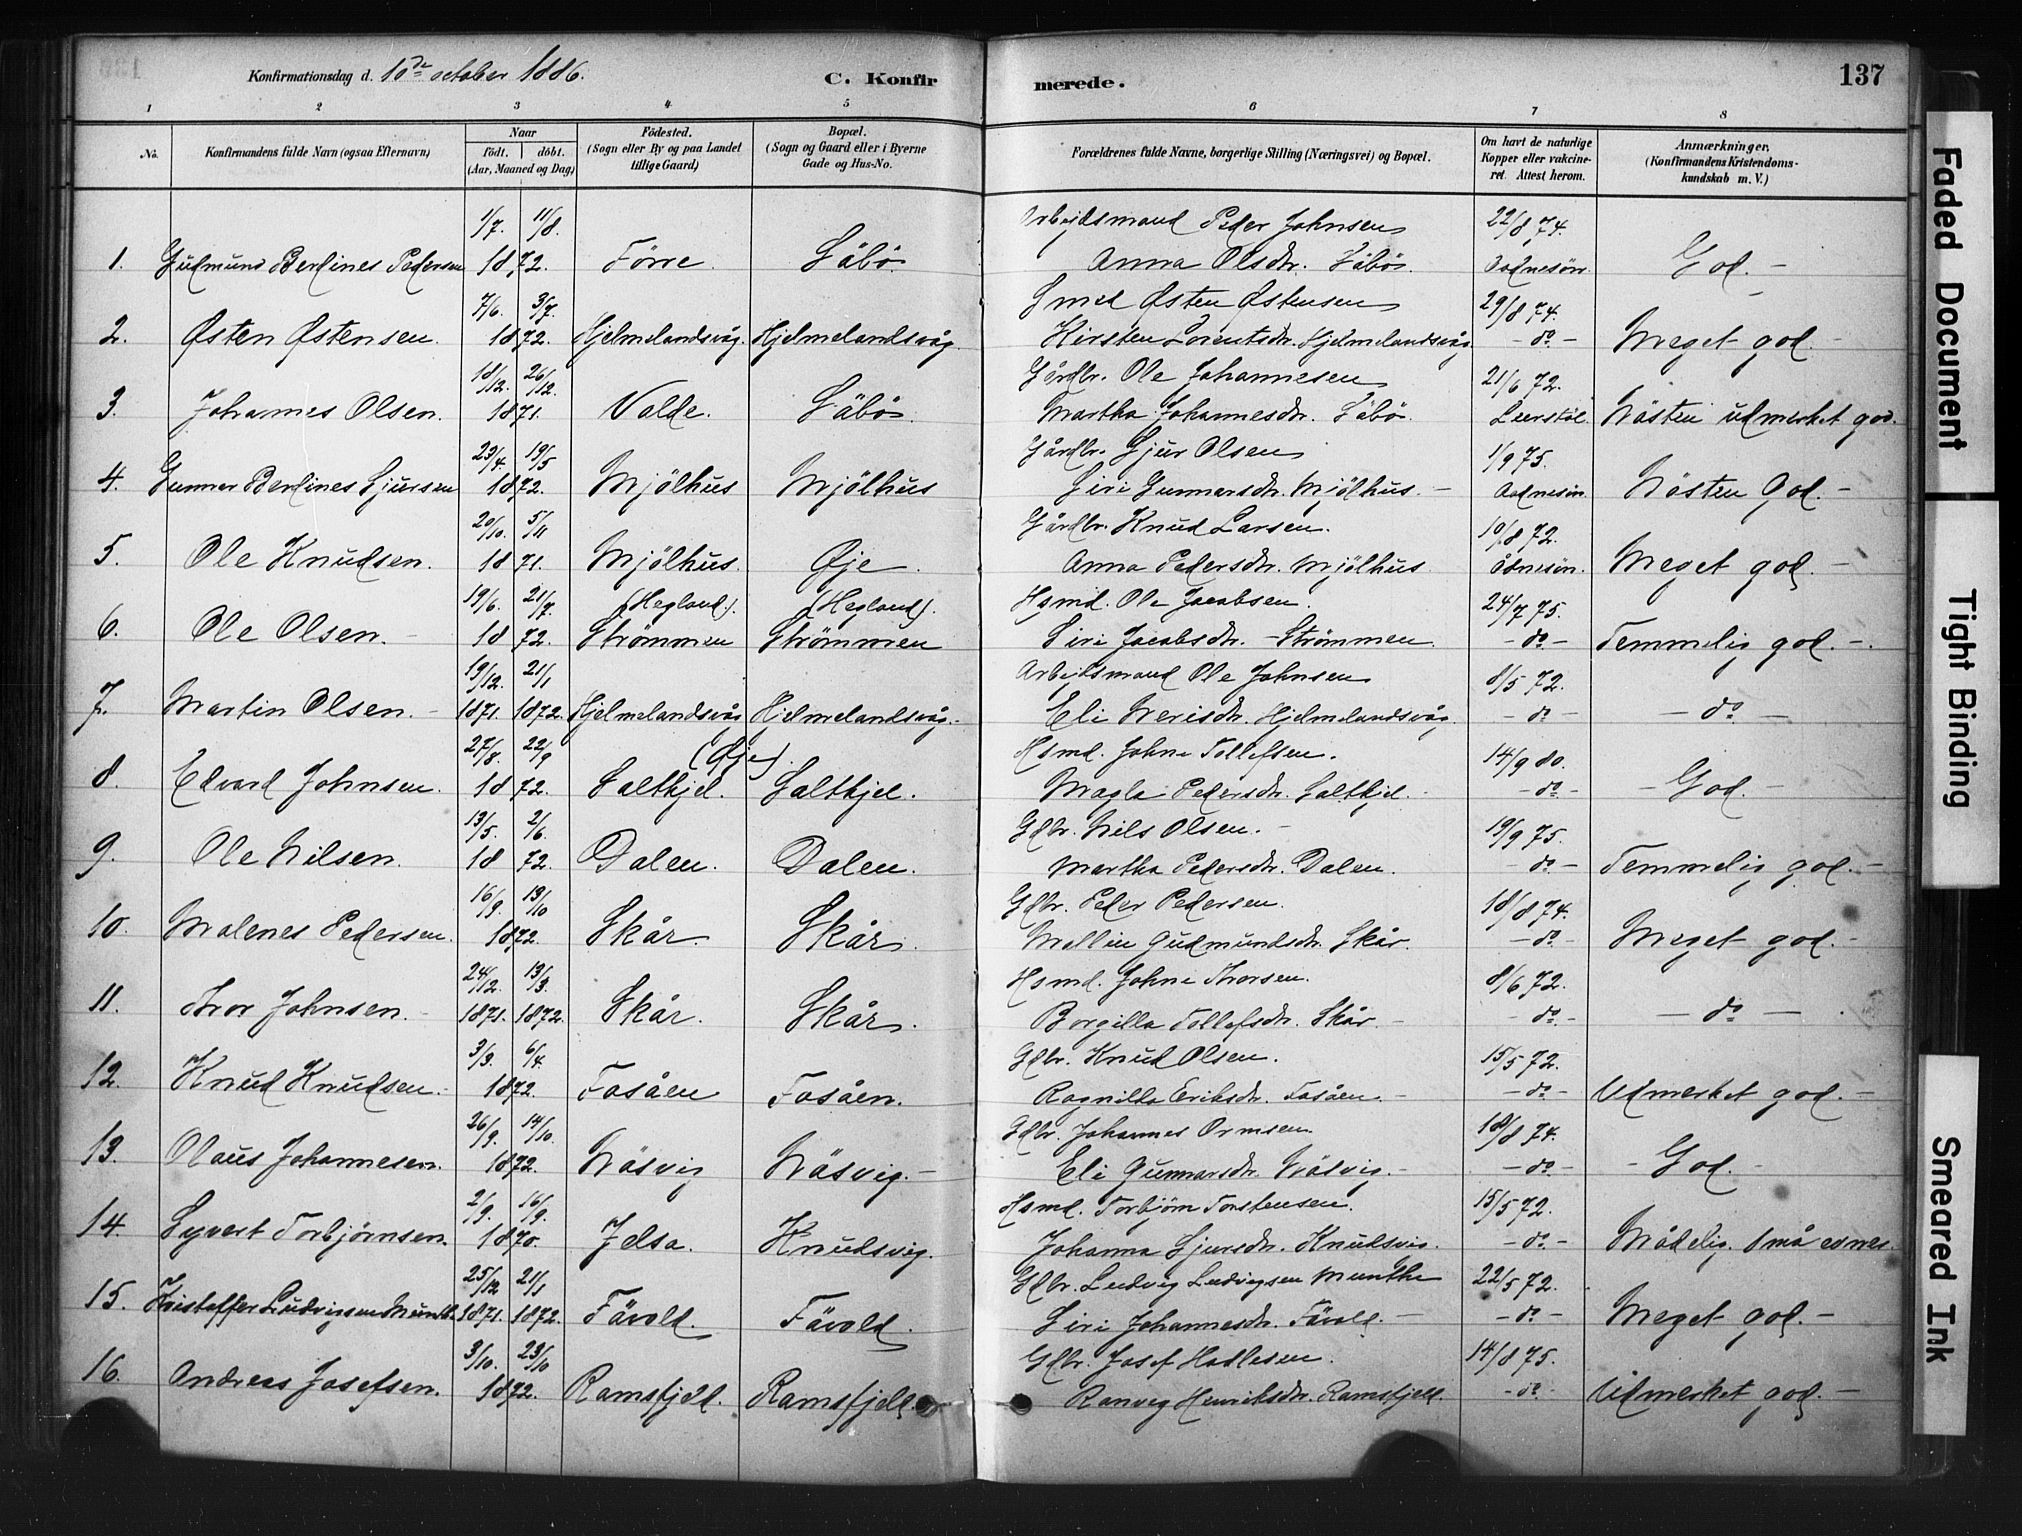 Konfirmationsdag d. 10de october 1886.
C. Konfirmerede.
137
1 2 3 4 5 6 7 8
No.
Konfirmandens fulde Navn (ogsaa Efternavn)
Naar
födt. döbt.
(Aar, Maaned og Dag)
Födested.
(Sogn eller By og paa Landet
tillige Gaard)
Bopæl.
(Sogn og Gaard eller i Byerne
Gade og Hus-No.
Forældrenes fulde Navne, borgerlige Stilling (Næringsvei) og Bopæl.
Om havt de naturlige
Kopper eller vakcine-
ret. Attest herom.
Anmærkninger,
(Konfirmandens Kristendoms-
kundskab m. V.)
1/7. 11/8 Arbejdsmand Peder Johnsen 22/8 74.
1. Gudmund Berdines Pedersen 1872. Förre Säbö Anna Olsdtr. Säbö Aadnesön God. -
7/6. 3/7. Smed Østen Østensen 29/8 74.
2. Østen Østensen. 1872. Hjelmelandsvåg. Hjelmelandsvåg. Kirsten Lorentsdtr. Hjelmelandsvåg - do - Meget god. -
18/12. 26/12. Gårdbr. Ole Johannesen 21/6 72.
3. Johannes Olsen. 1871. Valde. Säbö Martha Johannesdtr. Säbö Leersköl. Nästen udmerket god.
23/4. 19/5 Gårdbr. Gjur Olsen 1/9 75.
4. Gunnar Berdines Gjursen 1872. Mjölhus Mjölhus Siri Gunnarsdtr. Mjölhus. - Aadnesön Nästen God. -
20/10. 5/11 Gårdbr. Knud Larsen. 10/8 72.
5. Ole Knudsen. 1871. Mjölhus. Øje. Anna Pedersdtr. Mjölhus Ådnesön. Meget god. -
19/6. 21/7. (Hegland). (Hegland). Hsmd. Ole Jacobsen. 24/7 75.
6. Ole Olsen. 1872. Strömmen Strömmen Siri Jacobsdtr. - Strömmen. - do - Temmelig god. -
19/12. 21/1 Arbejdsmand Ole Johnsen 8/5 72.
7. Martin Olsen. - 1871. 1872. Hjelmelandsvåg Hjelmelandsvåg. - Eli Nerisdtr. Hjelmelandsvåg. - do - - do -
27/8. 22/9 (Øje). Hsmd. Johne Tollefsen. 14/9 80.
8. Edvard Johnsen. 1872. Saltkjel. Saltkjel. Magla Pedersdtr. Saltkjel. - do - - God. -
13/5. 2/6. Gdbr. Nils Olsen. - 19/9 75.
9. Ole Nilsen. 1872. Dalen. Dalen. Martha Pedersdtr. Dalen. - do - Temmelig god. -
16/9. 13/10 Gdbr. Peder Pedersen. 18/8 74.
10. Malenes Pedersen. 1872. Skår. Skår. Mallin Gudmundsdtr. Skår. - do - Meget god. -
24/12. 13/3. Hsmd. Johne Thorsen. 8/6 72.
11. Thor Johnsen. - 1871. 1872. Skår. Skår. Borgilla Tollefsdtr. Skår. - - do - - do -
3/3. 6/4. Gdbr. Knud Olsen. 15/5 72.
12. Knud Knudsen. 1872. Fosåen Fosåen. Ragnilda Eriksdtr. Fosåen. - - do - Udmerket god. -
26/9. 14/10. Gdbr. Johannes Ormsen. 18/8 74.
13. Olaus Johannesen. 1872. Näsvig Näsvig. - Eli Gunnarsdtr. Näsvig. - - do - - God. -
2/9. 16/9. Hsmd. Torbjörn Torstensen. 15/5 72.
14. Syvert Torbjörnsen. 1870. Jelsa. Knudsvig. Johanna Gjursdtr. Knudsvig. - do - Mådelig. Små evner.
25/12 21/1 Gdbr. Ludvig Ludvigsen Munthe 22/5 72.
15. Kristoffer Ludvigsen Munthe 1871. 1872. Fävold. Fävold. Siri Johannesdtr. Fävold. - - do - Meget god. -
3/10. 23/10 Gdbr. Josef Hadlesen. 14/8 75.
16. Andreas Josefsen. 1872. Ramsfjeld. Ramsfjeld. Ranveg Henriksdtr. Ramsfjeld. - do - Udmerket god. -
Faded Document
Tight Binding
Smeared Ink